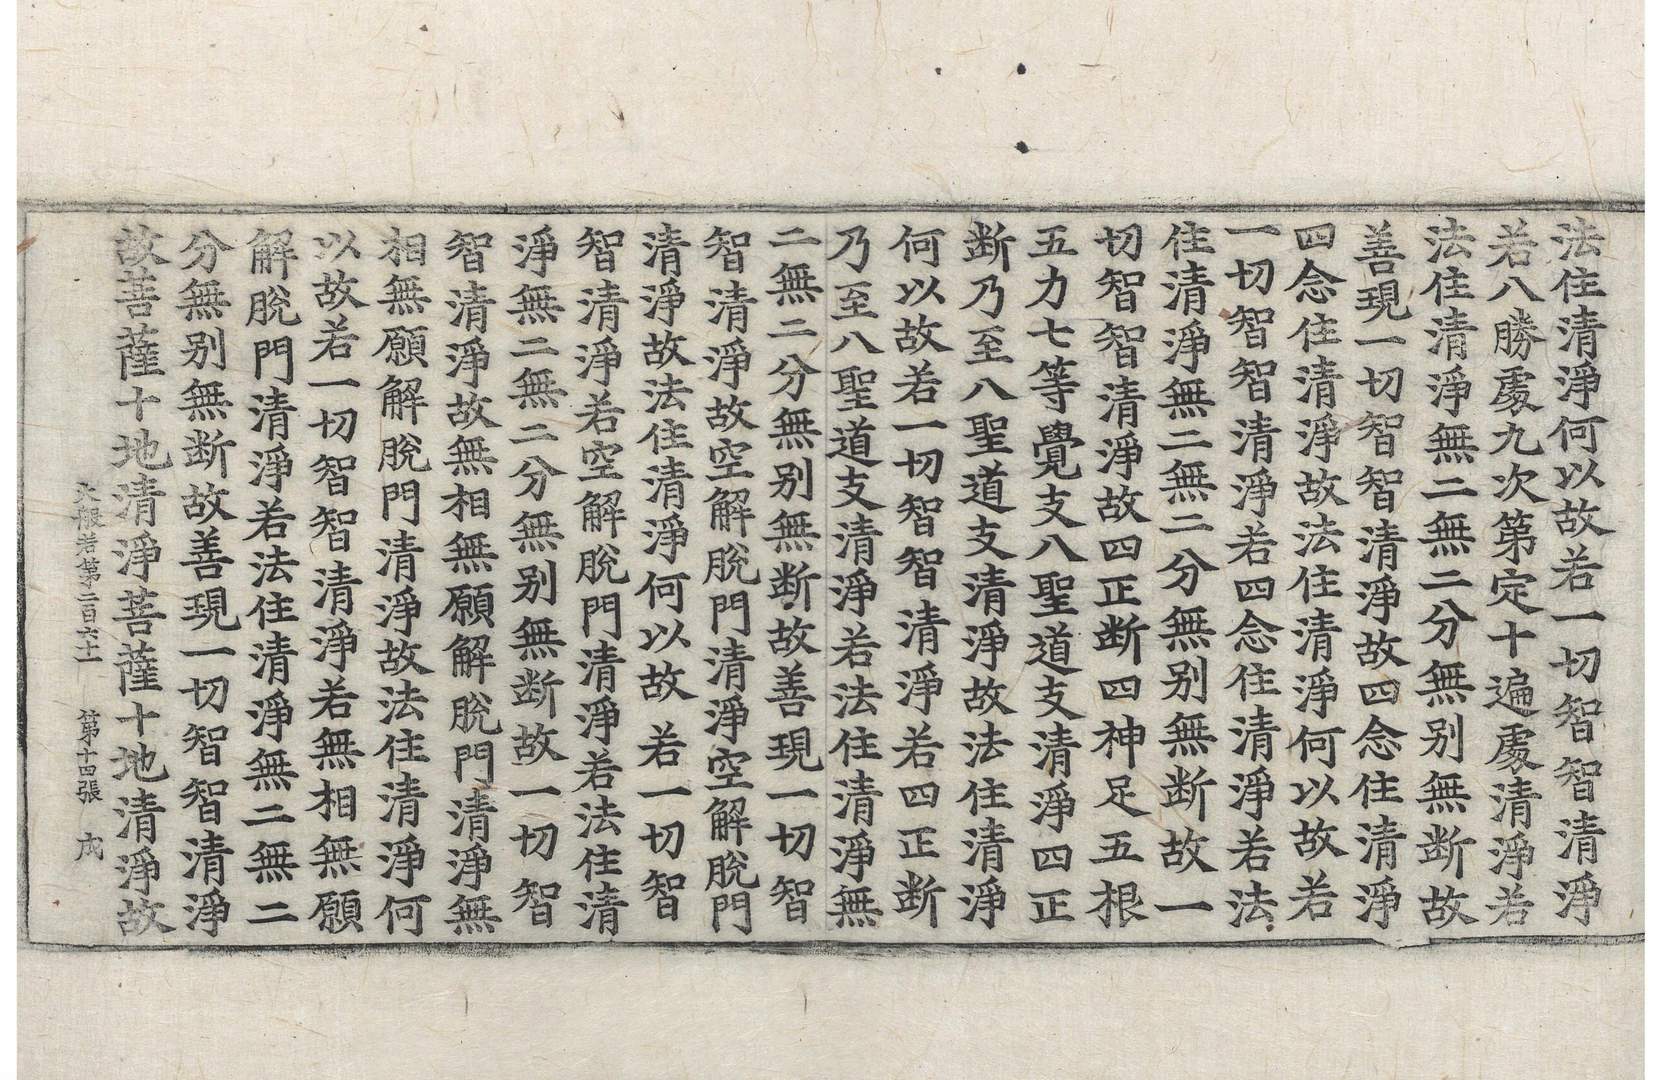 法住清淨何以故若一切智智清淨
若八勝處九次第定十遍處清淨若
法住清淨無二無二分無别無断故
善現一切智智清淨故四念住清淨
四念住清淨故法住清淨何以故若
一切智智清淨若四念住清淨若法
住清淨無二無二分無别無断故一
切智智清淨故四正断四神足五根
五力七等覺支八聖道支清淨四正
断乃至八聖道支清淨故法住清淨
何以故若一切智智清淨若四正断
乃至八聖道支清淨若法住清淨無
二無二分無别無断故善現一切智
智清淨故空解脫門清淨空解脫門
清淨故法住清淨何以故若一切智
智清淨若空解脫門清淨若法住清
淨無二無二分無别無断故一切智
智清淨故無相無願解脫門清淨無
相無願解脫門清淨故法住清淨何
以故若一切智智清淨若無相無願
解脫門清淨若法住清淨無二無二
分無别無断故善現一切智智清淨
故菩薩十地清淨菩薩十地清淨故
大般若第二百六十一 第十四張 成